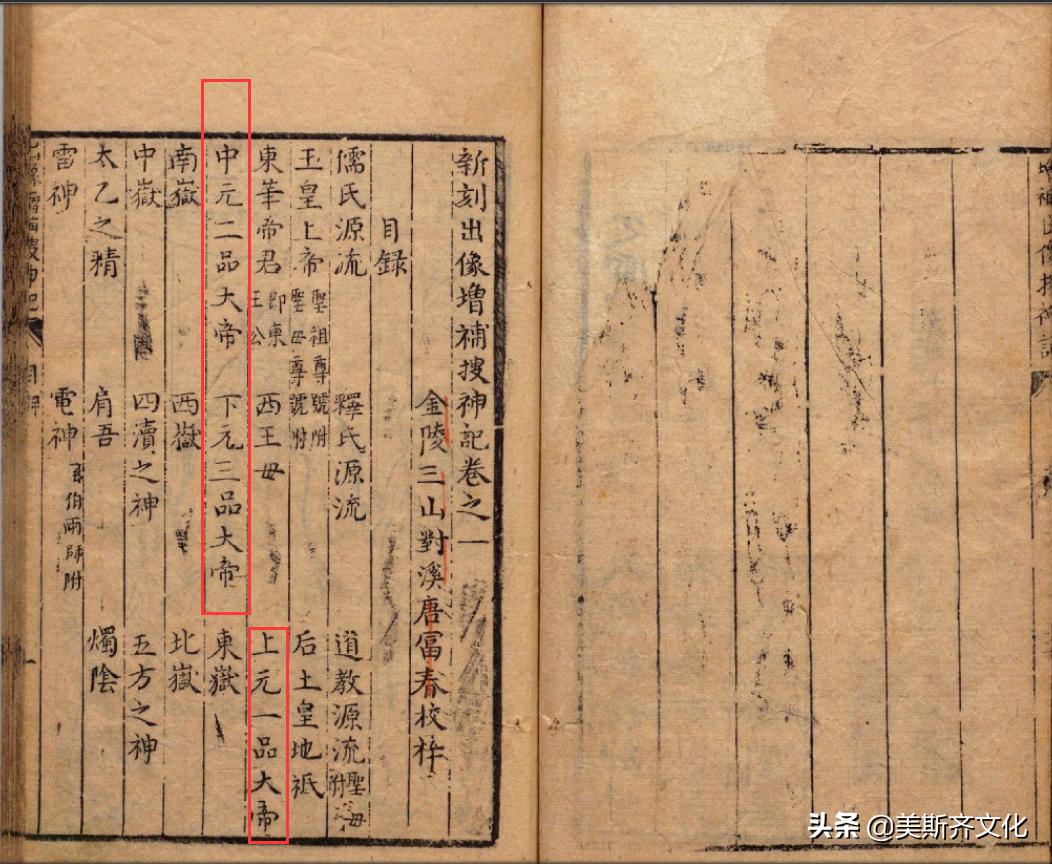 新刻出像增補搜神記卷之一
金陵三山對溪唐富春校梓
目錄
儒氏源流 釋氏源流 道教源流聖母附
玉皇上帝聖祖尊號附聖母尊號附 后土皇地祇
東華帝君即東王公 西王母 上元一品大帝
中元二品大帝 下元三品大帝 東嶽
南嶽 西嶽 北嶽
中嶽 四瀆之神 五方之神
太乙之精 肩吾 燭陰
雷神 電神 風伯雨師附
頭条 @美斯齐文化